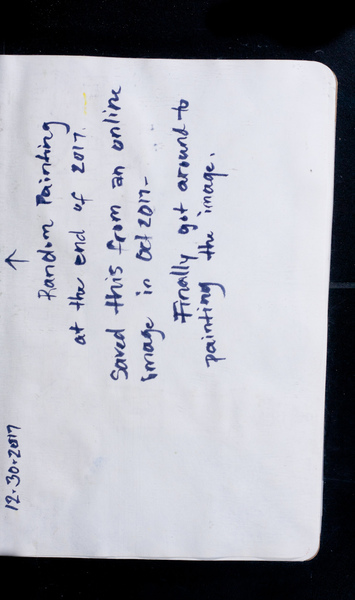 12.30.2017
↑
Random Painting
at the end of 2017.
Saved this from an online
image in Oct 2017-
Finally got around to
painting the image.